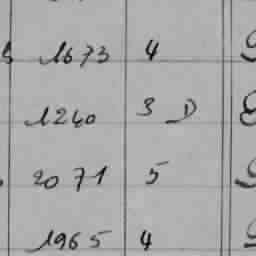 1673 4
1240 3 D
2071 5
1965 4